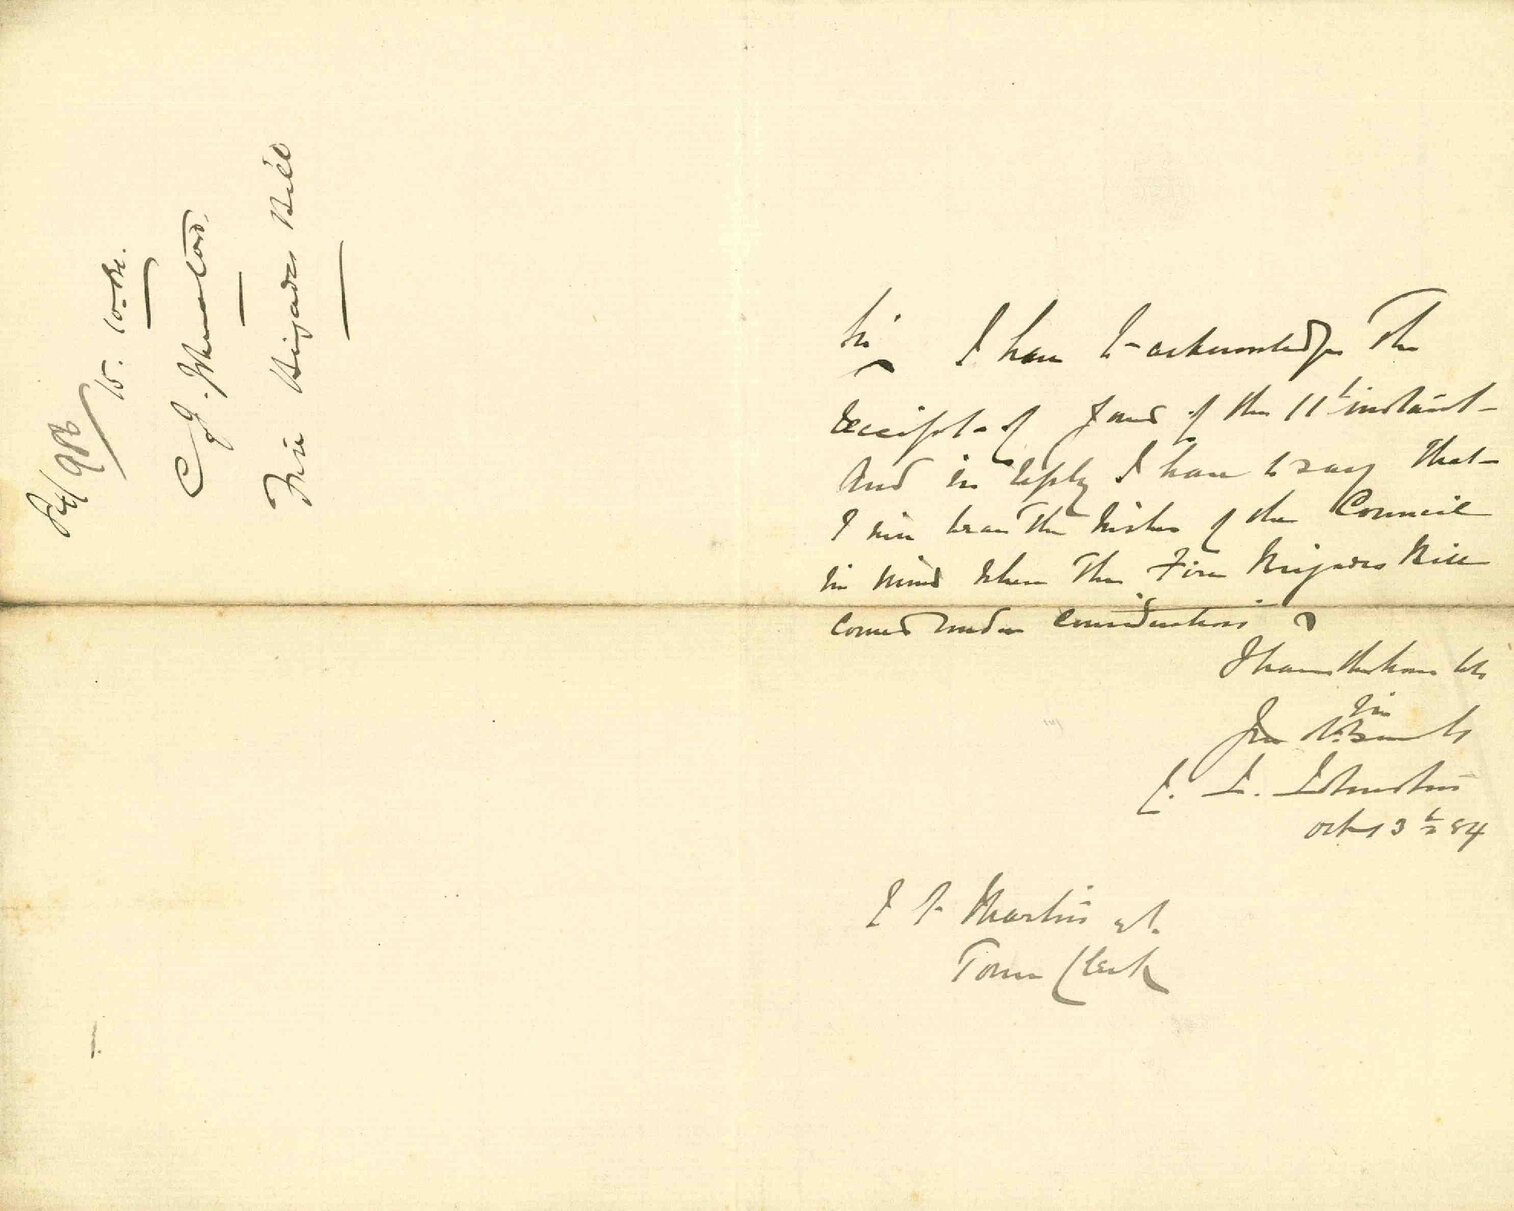 986
15.
Fire Brigades Bill
Sir
I have to acknowledge the
receipt of yours of the 11th instant
and in reply I have to say that
I will bear the wishes of the Council
in mind when the Fire Brigades Bill
comes under consideration
I have the honor to be
Sir
Your obt Servt
Octr 13th 84
Martin
Town Clerk